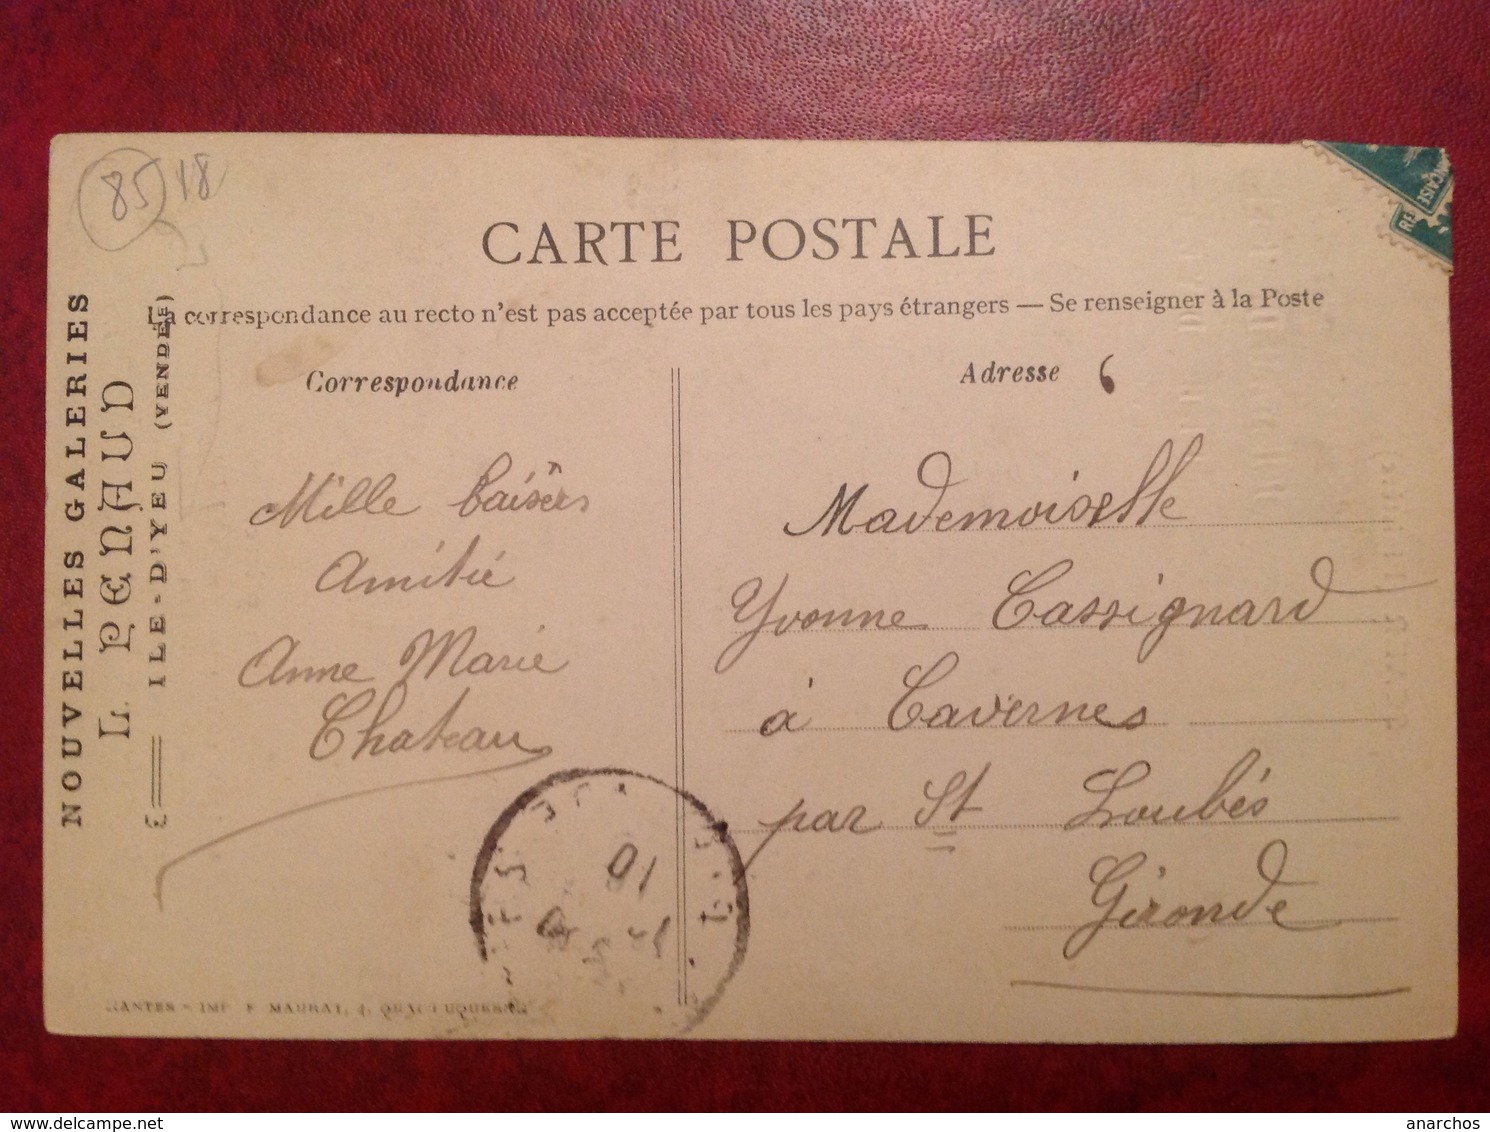 85 18
CARTE POSTALE
La correspondance au recto n'est pas acceptée par tous les pays étrangers — Se renseigner à la Poste
Correspondance
Adresse
Mille baisers
Amitié
Anne Marie
Chateau
Mademoiselle
Yvonne Cassignard
à Cavernes
par St Loubès
Gironde
NOUVELLES GALERIES
L. PENAUD
ILE-D'YEU (VENDÉE)
NANTES - IMP F. MAURAT, 4, QUAI DUQUESNE
10
ÇAISE
www.delcampe.net
anarchos